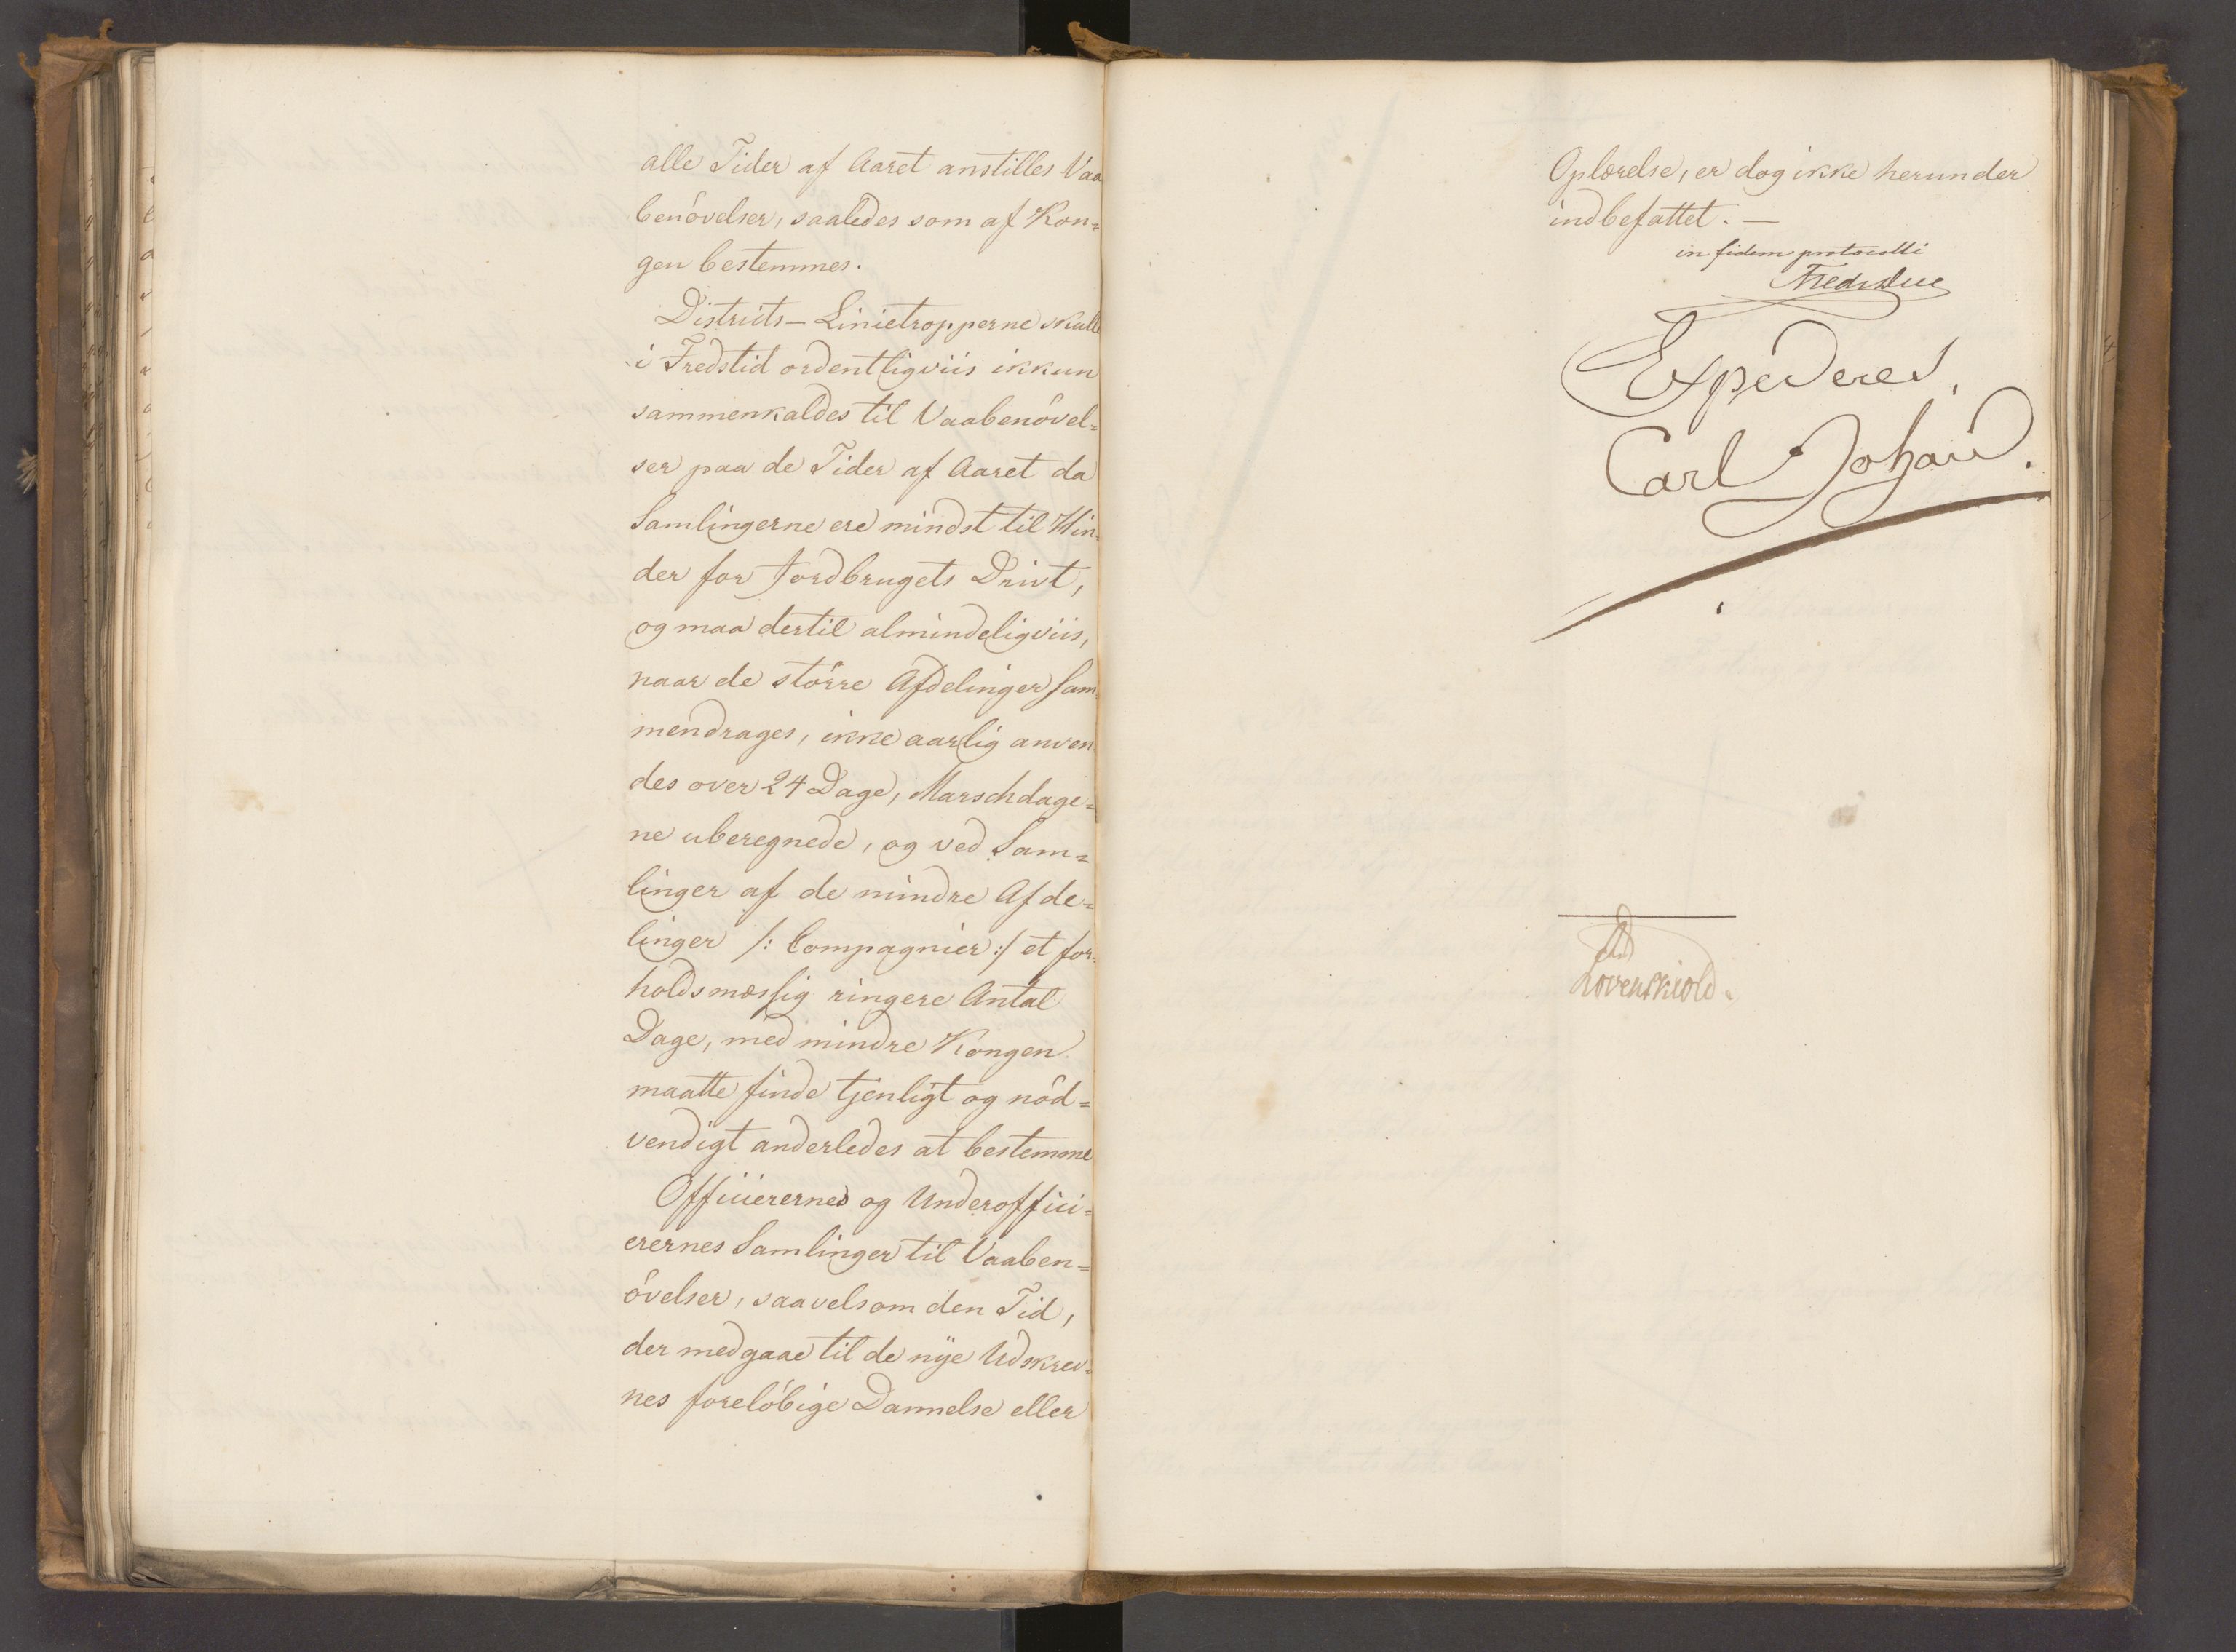 alle Tider af Aaret anstilles Vaa
benövelser, saaledes som af Kon=
gen bestemmes.
Districts-Linietropperne skulle
i Fredstid ordentligviis ikkun
sammenkaldes til Vaabenövel=
ser paa de Tider af Aaret da
Samlingerne ere mindst til Hin=
der for Jordbrugets Drivt,
og maa dertil almindeligviis,
naar de större Afdelinger sam
mendrages, ikke aarlig anven
des over 24 Dage, Marschdage=
ne uberegnede, og ved Sam=
linger af de mindre Afde=
linger /: Compagnier :/ et for=
holdsmæssig ringere Antal
Dage, med mindre Kongen
maatte finde tjenligt og nöd=
vendigt anderledes at bestemme
Officierernes og Underoffici=
erernes Samlinger til Vaaben=
övelser, saavelsom den Tid,
der medgaae til de nye Udskrev=
nes forelöbige Dannelse eller
Oplærelse, er dog ikke herunder
indbefattet. —
in fidem protocolli
Fredr Due
Expederes.
Carl Johan.
Lövenskiold.